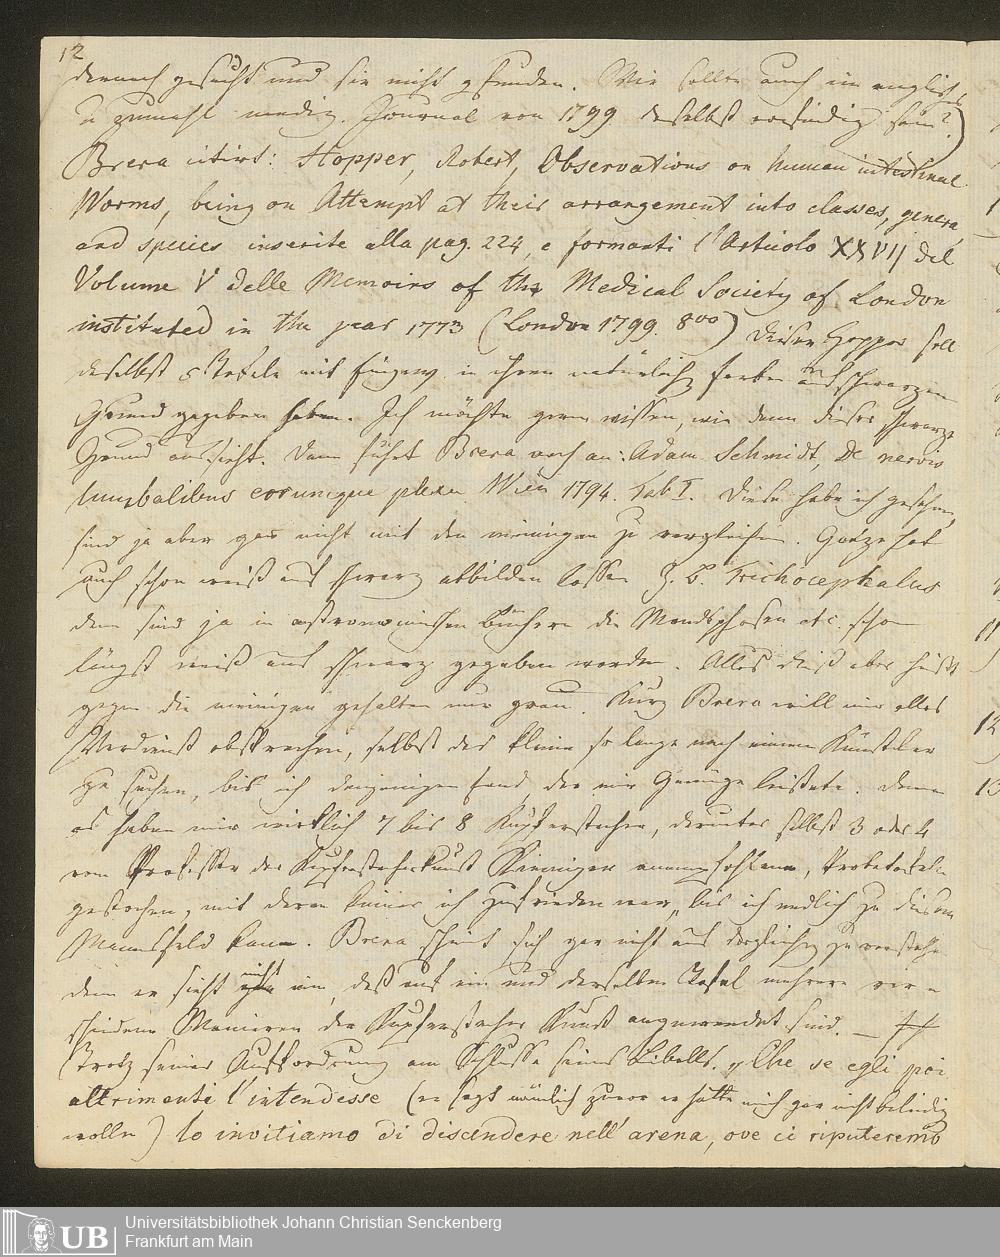 12
darnach gesucht und sie nicht gefunden. Wir sollen auch ein englisches
u zumahl medizi. Journal von 1799 daselbst vorfindig seÿn?)
Brera citirt: Hopper, Robert, Observations on human intestinal
Worms, being an Attempt at their arrangement into classes, genera,
and species inserite alla pag. 224, e formanti l'Articolo XXVII del
Volume V delle Memoirs of the Medical Society of London
instituted in the year 1773 (London 1799. 8vo) Dieser Hopper soll
daselbst 5 Tafeln mit Figuren in ihren natürlichen Farben auf schwarzem
Grund gegeben haben. Ich möchte gern wissen, wie denn dieser schwarze
Grund aussieht. Dann führt Brera noch an: Adam Schmidt, De nervis
lumbalibus eorumque plexu Wien 1794. Tab I. Diese habe ich gesehen,
sind ja aber gar nicht mit den meinigen zu vergleichen. Goeze hat
auch schon weiß auf schwarz abbilden lassen z. B. Trichocephalus
dann sind ja in astronomischen Büchern die Mondsphasen etc. schon
längst weiß auf schwarz gegeben worden. Alles dieß aber heißt
gegen die meinigen gehalten nur grau. Kurz Brera will mir alles
Verdienst absprechen, selbst das kleine so lange nach einem Künstler
zu suchen, bis ich denjenigen fand, der mir Genüge leistete. Denn
es haben mir wirklich 7 bis 8 Kupferstecher, darunter selbst 3 oder 4
vom Professor der Kupferstecherkunst anempfohlene, Probetafeln
gestochen, mit deren keiner ich zufrieden war, bis ich endlich zu diesem
Mannsfeld kam. Brera scheint sich gar nicht auf dergleichen zu verstehen
denn er sieht nicht ein, daß auf ein und derselben Tafel mehrere ver-
schiedene Manieren der Kupferstecher Kunst angewendet sind. —
Trotz seiner Aufforderung am Schlusse seines Libells. „Che se egli poi
altrimenti l'intendesse (er sagt nämlich zuvor er hätte mich gar nicht beleidigen
wollen) lo invitiamo di discendere nell' arena, ove ci riputeremo
Universitätsbibliothek Johann Christian Senckenberg
Frankfurt am Main
UB